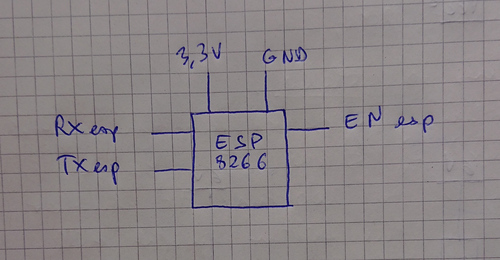 3,3V GND
RX esp
EN esp
ESP
8266
TX esp